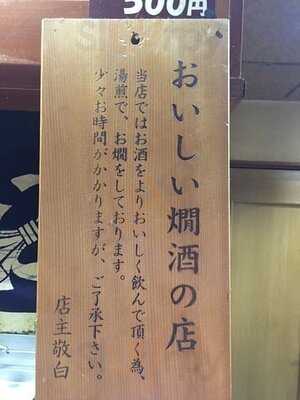 500円
おいしい燗酒の店
当店ではお酒をよりおいしく飲んで頂く為、
湯煎で、お燗をしております。
少々お時間がかかりますが、ご了承下さい。
店主敬白